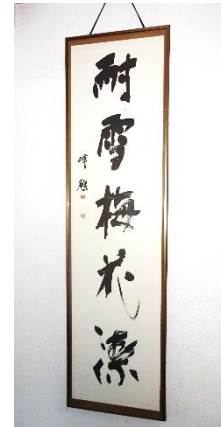 耐雪梅花潔